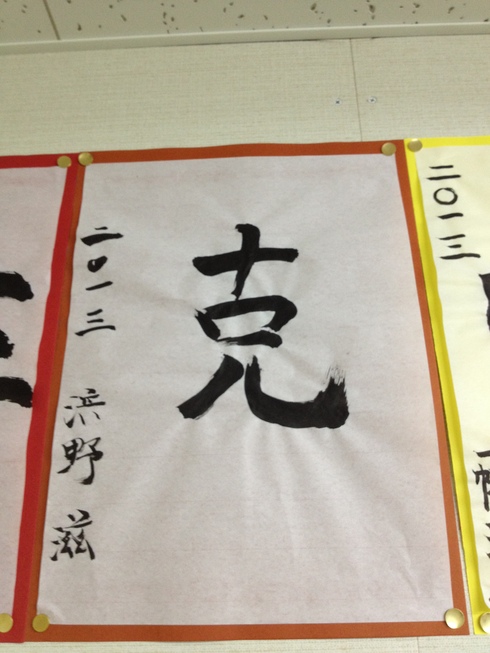 克
二〇一三 浜野 滋
二〇一三